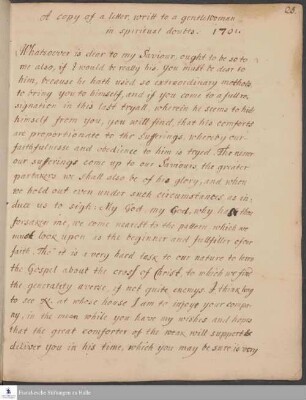 A copy of a letter, writt to a gentlewoman
in spiritual doubts. 1701.
Whatsoever is dear to my Saviour, ought to be so to
me also, if I would be really his. You must be dear to
him, because he hath used so extraordinary methods
to bring you to himself, and if you come to a full re-
signation in this last tryall, wherein he seems to hide
himself from you, you will find, that his comforts
are proportionate to the sufferings, whereby our
faithfulness and obedience to him is tryed. The more
our sufferings come up to our Saviours the greater
partakers we shall also be of his glory, and when
we hold out even under such circumstances as in-
duce us to sigh: My God, my God, why hast thou
forsaken me, we come nearest to the pattern which we
must look upon as the beginner and fullfiller of our
faith. Tho' it is a very hard task to our nature to
the Gospel about the cross of Christ, to which we find
the generality averse, if not quite enemys. I think long
to see &c. at whose house I am to injoye your compa-
ny, in the mean while you have my wishes and hopes
that the great comforter of the weak will support &
deliver you in his time, which you may be sure is very
Franckesche Stiftungen zu Halle